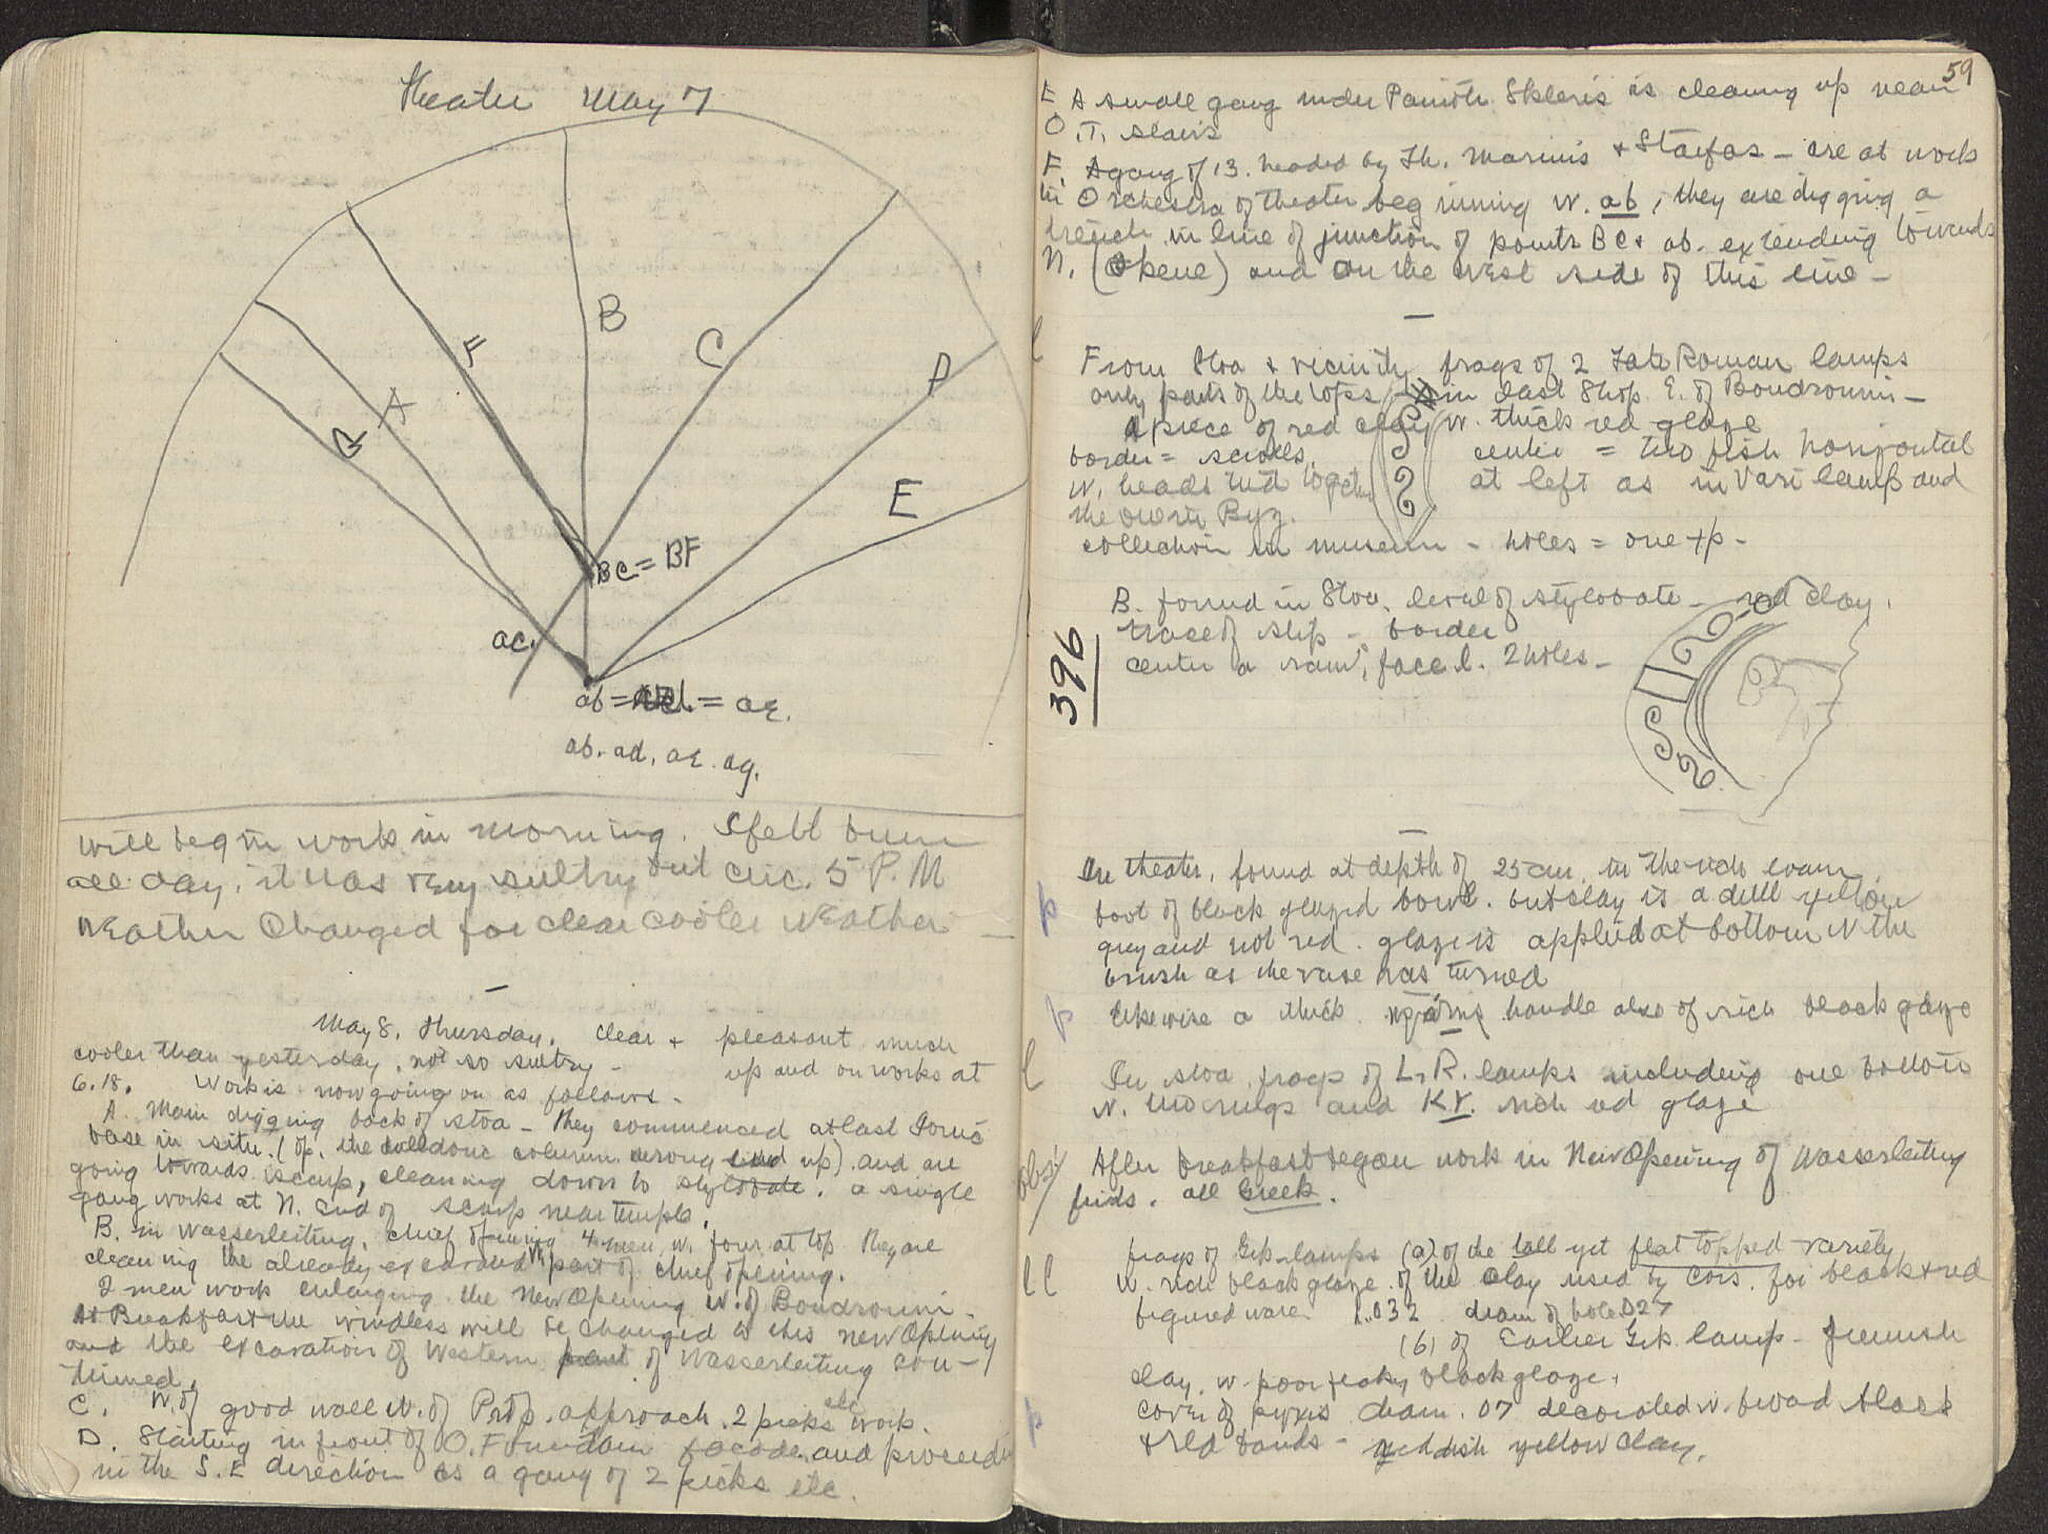 Theater May 7
F
B
C
D
A
G
E
BC = BF
ac.
ab = = aE.
ab. ad. aE. ag.
will begin work in morning. I felt bum
all day. it was very sultry but circ. 5 P.M
weather changed for clear cooler weather —
May 8, Thursday. Clear + pleasant much
cooler than yesterday, not so sultry - up and on works at
6.18. Work is now going on as follows -
A. Main digging back of stoa - They commenced at last Ionic
base in situ. (op. the column wrong end up) and are
going towards scarp, cleaning down to stylobate. a single
gang works at N. End of scarp near temple.
B. in Wasserleitung. chief opening 4 men w. four at top They are
cleaning the already excavated part of chief opening.
2 men work enlarging the New Opening W. of Boudroumi -
At Breakfast the windless will be changed to this new opening
and the excavation of Western part of Wasserleitung con-
tinued.
C. W. of good wall W. of Prop. approach. 2 picks etc work.
D. Starting in front of O. Fountain facade and proceeding
in the S. E direction is a gang of 2 picks etc.
59
E A small gang under Skleris is cleaning up near
O.T. stairs
F. A gang of 13. headed by Th. Marinis + Staifas - are at work
in Orchestra of theater beginning w. ab, they are digging a
trench in line of junction of points BC + ab. extending towards
N. (Skene) and on the West side of this line -
l
From Stoa + vicinity frags of 2 Late Roman lamps
only parts of the tops - in last Shop E. of Boudroumi -
A piece of red clay w. thick red glaze
border = scrolls. center = two fish horizontal
w. heads tied together at left as in Vari lamp and
the one in Byz.
collection in museum - holes = one + p -
396
B. found in Stoa. level of stylobate - red clay.
trace of slip - border
center a ram, face l. 2 holes -
p
In theater, found at depth of 25 cm. in
foot of black glazed bowl. but clay is a dull yellow
grey and not red. glaze is applied at bottom w the
brush as the vase was turned
p
likewise a thick handle also of rich black glaze
l
In stoa frags of L. R. lamps including one bottom
w. two rings and KY. rich red glaze
After breakfast began work in New Opening of Wasserleitung
finds. all Greek.
ll
frags of Gk-lamps (a) of the tall yet flat topped variety
w. rich black glaze of the clay used by Cors. for black + red
figured ware. l. .032 diam of hole .027
(b) of Earlier Gk. lamp - greenish
clay. w. poor flaky black glaze.
p
cover of pyxis diam. .07 decorated w. broad black
+ red bands - reddish yellow clay.